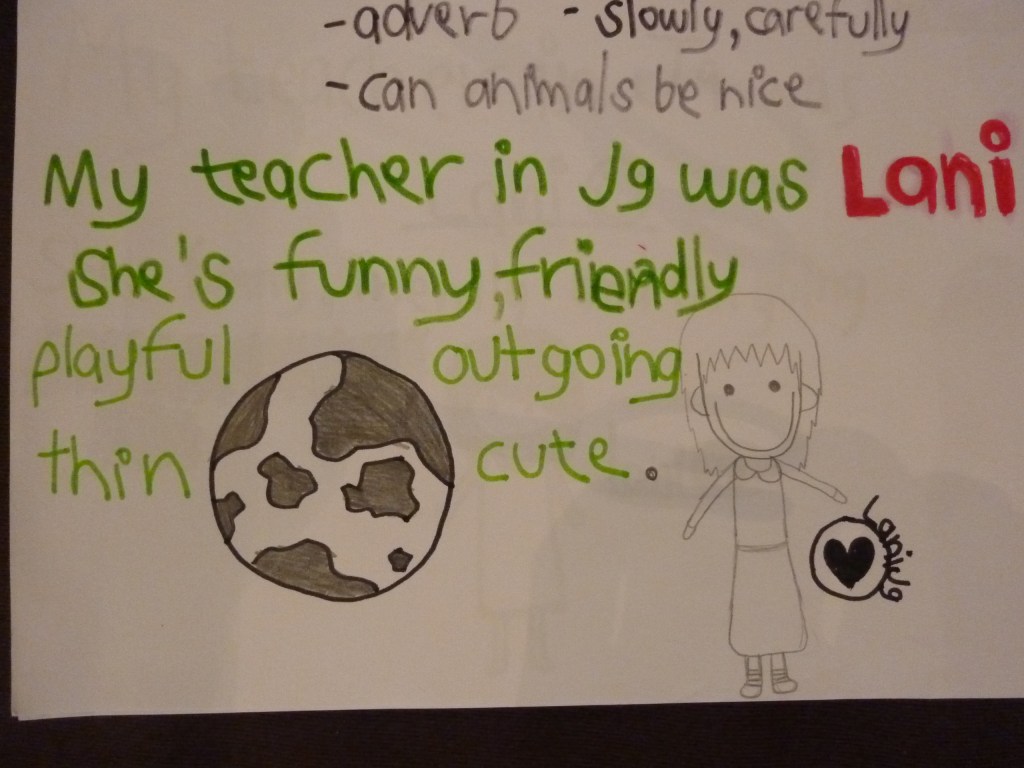 -adverb - slowly, carefully
-can animals be nice
My teacher in Jg was Lani
She's funny, friendly
playful outgoing
thin cute.
Lani Jg